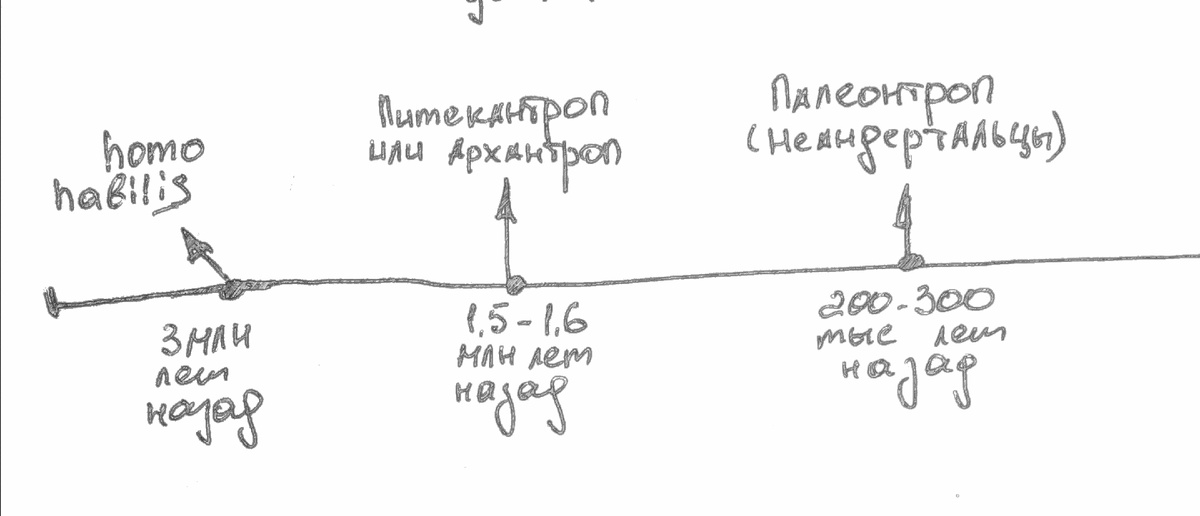 homo
habilis
3 млн
лет
назад
Питекантроп
или Архантроп
1,5-1,6
млн лет
назад
Палеонтроп
(Неандертальцы)
200-300
тыс лет
назад